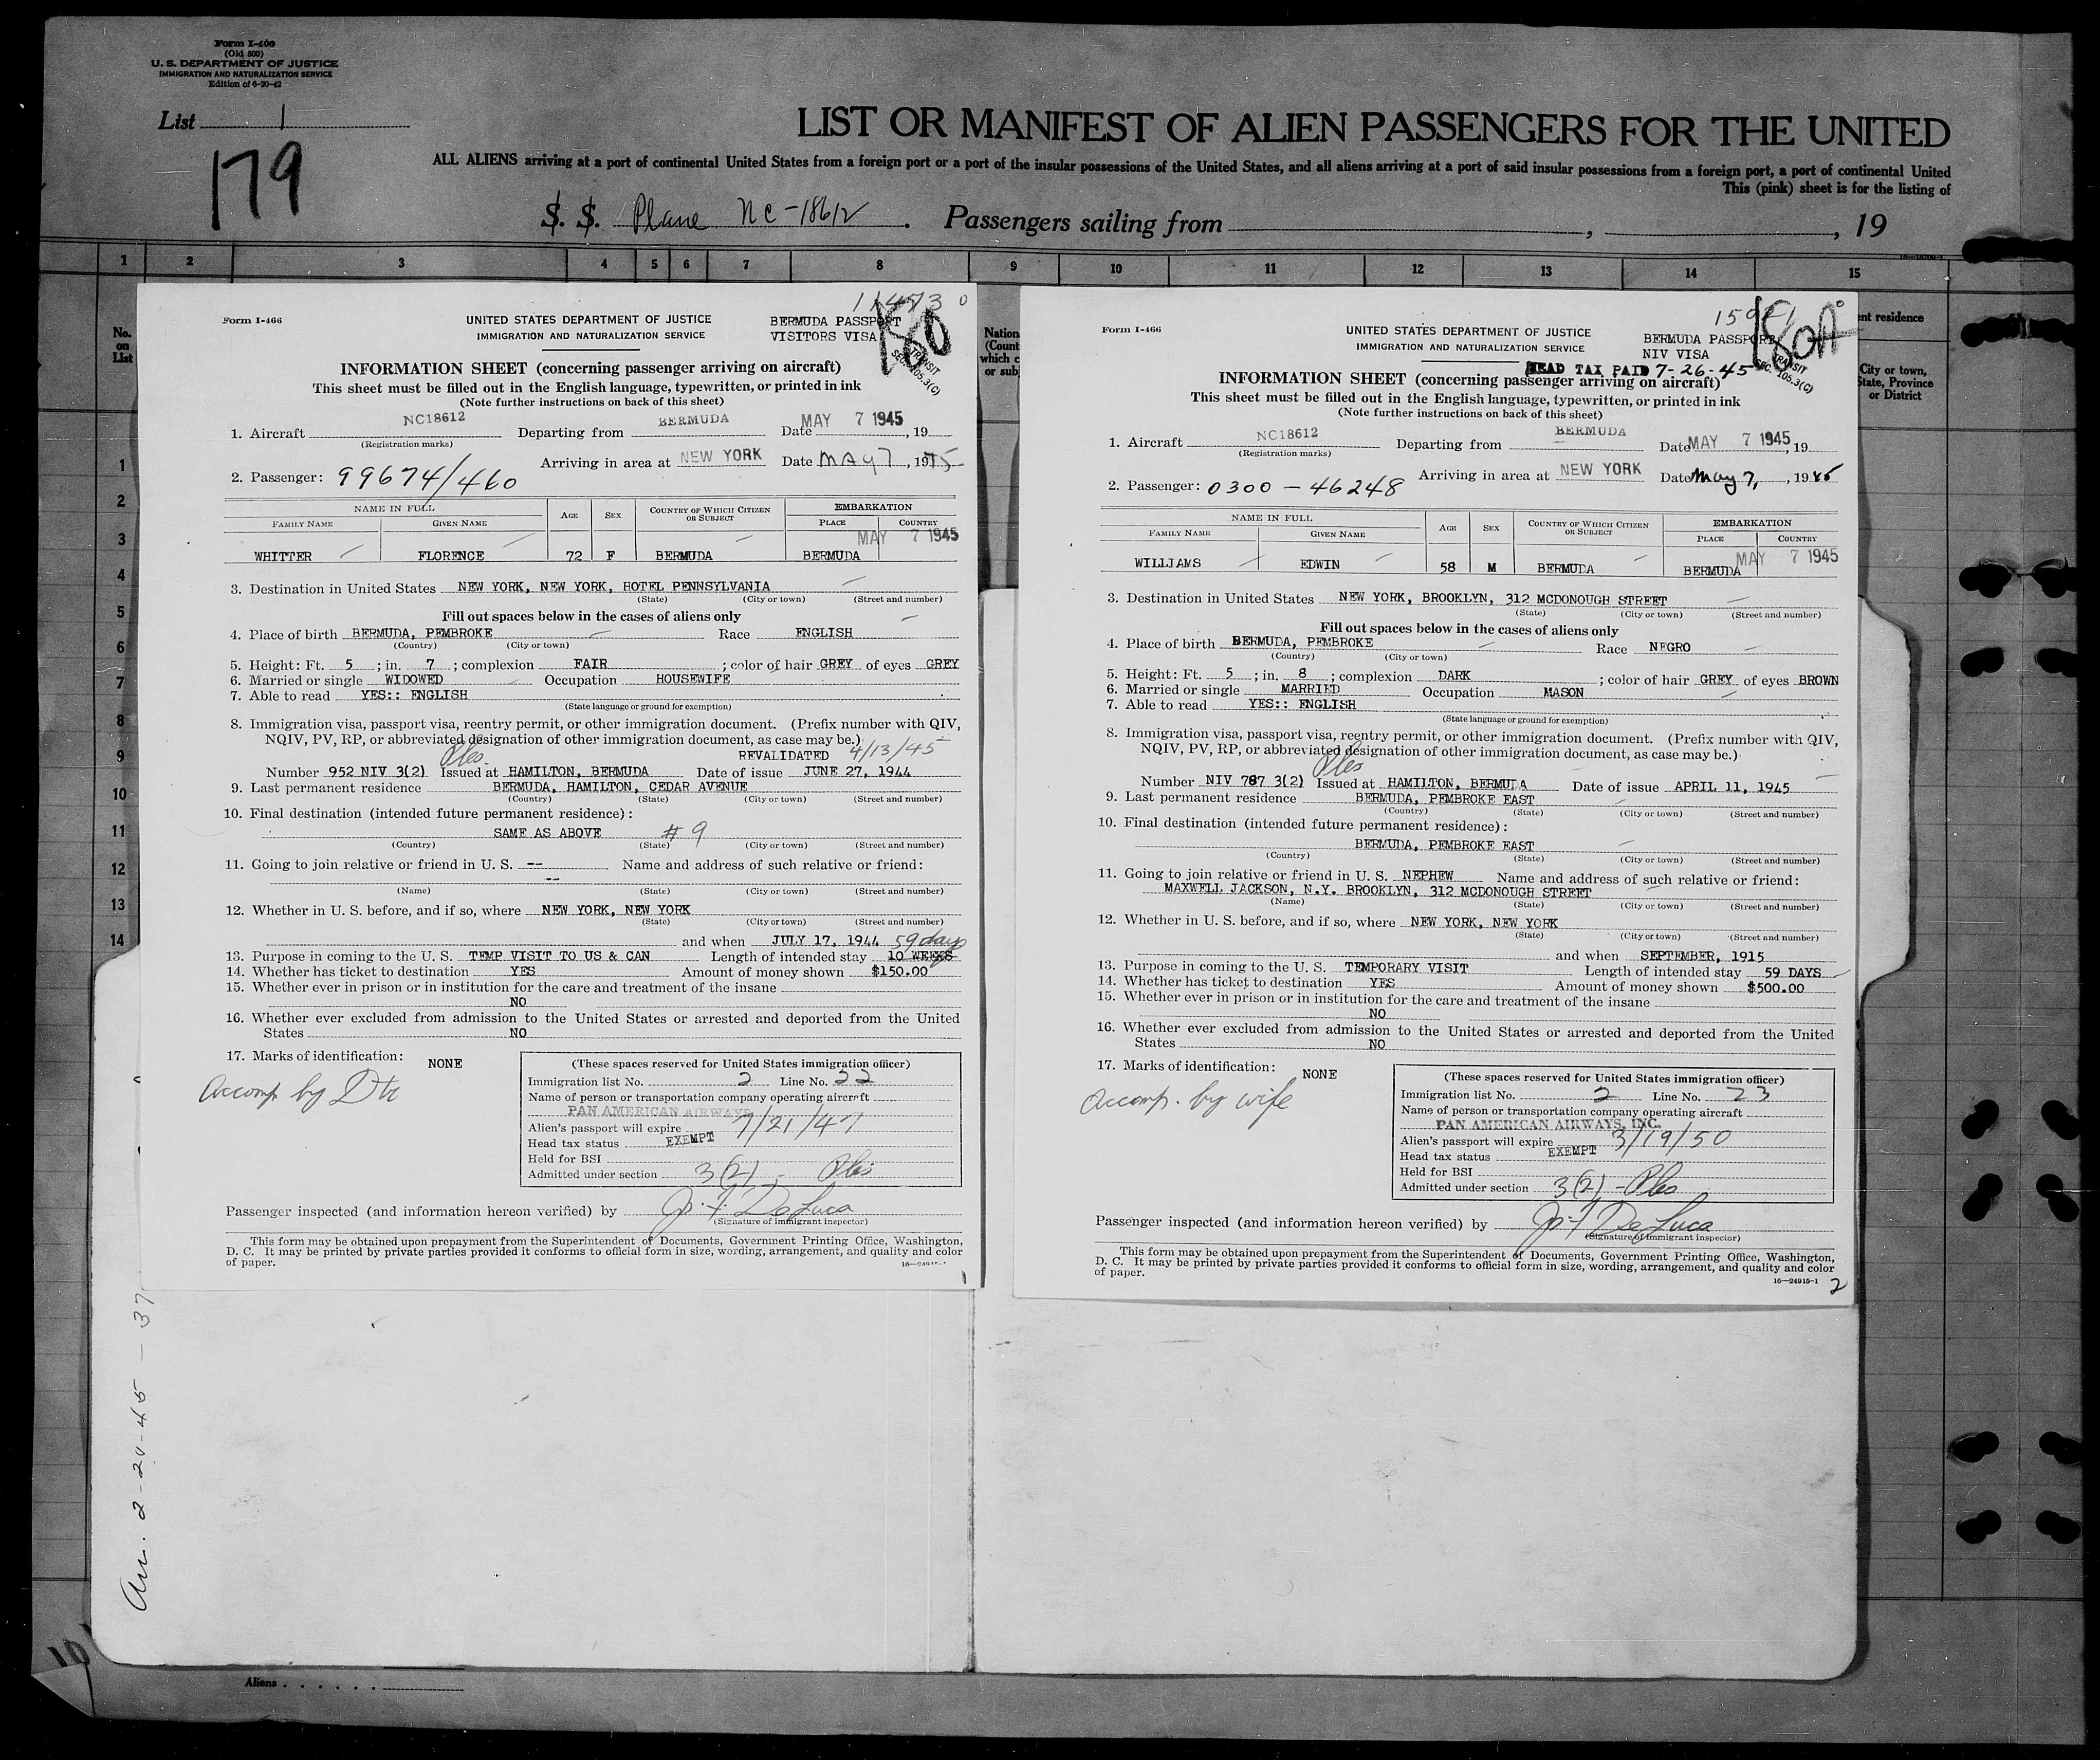 Form I-400
(Old 500)
U. S. DEPARTMENT OF JUSTICE
IMMIGRATION AND NATURALIZATION SERVICE
Edition of 6-20-42
List 1
179
LIST OR MANIFEST OF ALIEN PASSENGERS FOR THE UNITED
ALL ALIENS arriving at a port of continental United States from a foreign port or a port of the insular possessions of the United States, and all aliens arriving at a port of said insular possessions from a foreign port, a port of continental United
This (pink) sheet is for the listing of
S. S. Plane NC-18612. Passengers sailing from , , 19
1 2 3 4 5 6 7 8 9 10 11 12 13 14 15
No. on List
1
2
3
4
5
6
7
8
9
10
11
12
13
14
Form I-466
UNITED STATES DEPARTMENT OF JUSTICE
IMMIGRATION AND NATURALIZATION SERVICE
11473
BERMUDA PASSPORT
VISITORS VISA
180
TRANSIT
SEC. 105.3(C)
INFORMATION SHEET (concerning passenger arriving on aircraft)
This sheet must be filled out in the English language, typewritten, or printed in ink
(Note further instructions on back of this sheet)
1. Aircraft NC18612 Departing from BERMUDA Date MAY 7 1945, 19
(Registration marks)
Arriving in area at NEW YORK Date MAY 7, 1945
2. Passenger: 99674/460
NAME IN FULL AGE SEX COUNTRY OF WHICH CITIZEN OR SUBJECT EMBARKATION
FAMILY NAME GIVEN NAME PLACE COUNTRY
MAY 7 1945
WHITTER FLORENCE 72 F BERMUDA BERMUDA
3. Destination in United States NEW YORK, NEW YORK, HOTEL PENNSYLVANIA
(State) (City or town) (Street and number)
Fill out spaces below in the cases of aliens only
4. Place of birth BERMUDA, PEMBROKE Race ENGLISH
(Country) (City or town)
5. Height: Ft. 5 ; in. 7 ; complexion FAIR ; color of hair GREY of eyes GREY
6. Married or single WIDOWED Occupation HOUSEWIFE
7. Able to read YES:: ENGLISH
(State language or ground for exemption)
8. Immigration visa, passport visa, reentry permit, or other immigration document. (Prefix number with QIV,
NQIV, PV, RP, or abbreviated designation of other immigration document, as case may be.)
REVALIDATED 4/13/45
Number 952 NIV 3(2) Issued at HAMILTON, BERMUDA Date of issue JUNE 27, 1944
9. Last permanent residence BERMUDA, HAMILTON, CEDAR AVENUE
(Country) (State) (City or town) (Street and number)
10. Final destination (intended future permanent residence):
SAME AS ABOVE #9
(Country) (State) (City or town) (Street and number)
11. Going to join relative or friend in U. S. -- Name and address of such relative or friend:
--
(Name) (State) (City or town) (Street and number)
12. Whether in U. S. before, and if so, where NEW YORK, NEW YORK
(State) (City or town) (Street and number)
and when JULY 17, 1944 59 days
13. Purpose in coming to the U. S. TEMP VISIT TO US & CAN Length of intended stay 10 WEEKS
14. Whether has ticket to destination YES Amount of money shown $150.00
15. Whether ever in prison or in institution for the care and treatment of the insane
NO
16. Whether ever excluded from admission to the United States or arrested and deported from the United
States NO
17. Marks of identification: NONE
Accomp by Dtr
(These spaces reserved for United States immigration officer)
Immigration list No. 2 Line No. 22
Name of person or transportation company operating aircraft
PAN AMERICAN AIRWAYS
Alien's passport will expire 7/21/47
Head tax status EXEMPT
Held for BSI
Admitted under section 3(2) -
Passenger inspected (and information hereon verified) by J. F. DeLuca
(Signature of immigrant inspector)
This form may be obtained upon prepayment from the Superintendent of Documents, Government Printing Office, Washington,
D. C. It may be printed by private parties provided it conforms to official form in size, wording, arrangement, and quality and color
of paper.
1
Nation
(Count
which c
or sub
Form I-466
UNITED STATES DEPARTMENT OF JUSTICE
IMMIGRATION AND NATURALIZATION SERVICE
BERMUDA PASSPORT
NIV VISA
180A
HEAD TAX PAID 7-26-45
TRANSIT
SEC. 105.3(C)
INFORMATION SHEET (concerning passenger arriving on aircraft)
This sheet must be filled out in the English language, typewritten, or printed in ink
(Note further instructions on back of this sheet)
1. Aircraft NC18612 Departing from BERMUDA Date MAY 7 1945, 19
(Registration marks)
Arriving in area at NEW YORK Date May 7, 1945
2. Passenger: 0300-46248
NAME IN FULL AGE SEX COUNTRY OF WHICH CITIZEN OR SUBJECT EMBARKATION
FAMILY NAME GIVEN NAME PLACE COUNTRY
MAY 7 1945
WILLIAMS EDWIN 58 M BERMUDA BERMUDA
3. Destination in United States NEW YORK, BROOKLYN, 312 MCDONOUGH STREET
(State) (City or town) (Street and number)
Fill out spaces below in the cases of aliens only
4. Place of birth BERMUDA, PEMBROKE Race NEGRO
(Country) (City or town)
5. Height: Ft. 5 ; in. 8 ; complexion DARK ; color of hair GREY of eyes BROWN
6. Married or single MARRIED Occupation MASON
7. Able to read YES:: ENGLISH
(State language or ground for exemption)
8. Immigration visa, passport visa, reentry permit, or other immigration document. (Prefix number with QIV,
NQIV, PV, RP, or abbreviated designation of other immigration document, as case may be.)
Number NIV 787 3(2) Issued at HAMILTON, BERMUDA Date of issue APRIL 11, 1945
9. Last permanent residence BERMUDA, PEMBROKE EAST
(Country) (State) (City or town) (Street and number)
10. Final destination (intended future permanent residence):
BERMUDA, PEMBROKE EAST
(Country) (State) (City or town) (Street and number)
11. Going to join relative or friend in U. S. NEPHEW Name and address of such relative or friend:
MAXWELL JACKSON, N.Y. BROOKLYN, 312 MCDONOUGH STREET
(Name) (State) (City or town) (Street and number)
12. Whether in U. S. before, and if so, where NEW YORK, NEW YORK
(State) (City or town) (Street and number)
and when SEPTEMBER, 1915
13. Purpose in coming to the U. S. TEMPORARY VISIT Length of intended stay 59 DAYS
14. Whether has ticket to destination YES Amount of money shown $500.00
15. Whether ever in prison or in institution for the care and treatment of the insane
NO
16. Whether ever excluded from admission to the United States or arrested and deported from the United
States NO
17. Marks of identification: NONE
Accomp. by wife
(These spaces reserved for United States immigration officer)
Immigration list No. 2 Line No. 23
Name of person or transportation company operating aircraft
PAN AMERICAN AIRWAYS, INC.
Alien's passport will expire 3/19/50
Head tax status EXEMPT
Held for BSI
Admitted under section 3(2) -
Passenger inspected (and information hereon verified) by J. F. DeLuca
(Signature of immigrant inspector)
This form may be obtained upon prepayment from the Superintendent of Documents, Government Printing Office, Washington,
D. C. It may be printed by private parties provided it conforms to official form in size, wording, arrangement, and quality and color
of paper.
16—24915-1
2
nt residence
City or town,
State, Province
or District
2-20-45 - 37
10
Aliens